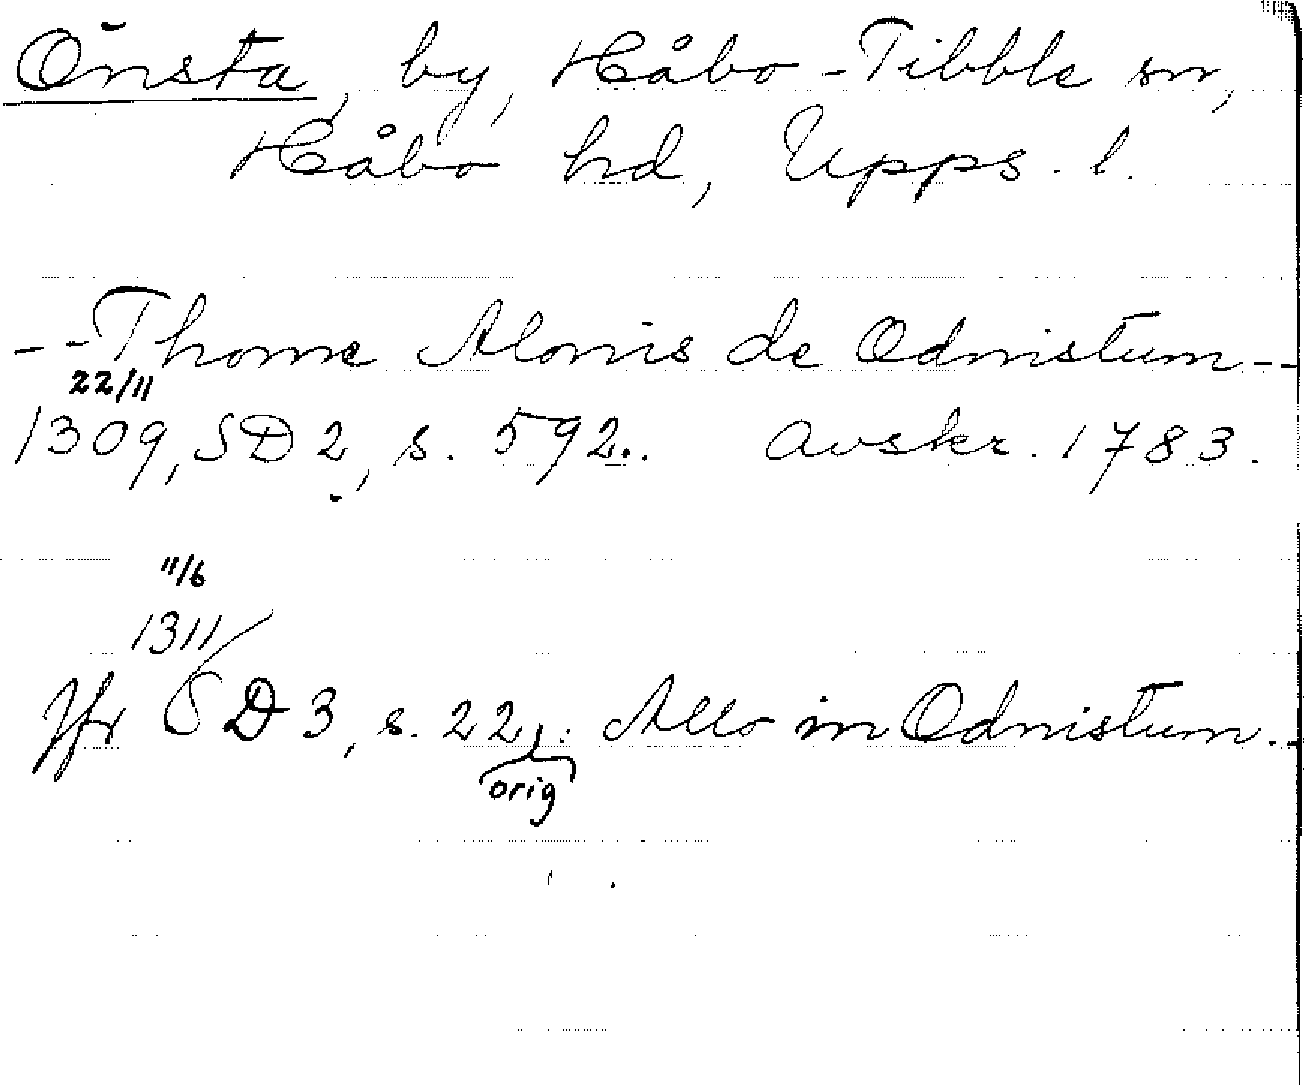 Önsta, by, Håbo-Tibble sn,
Håbo hd, Upps. l.
--Thome Alonis de Odnistum--
22/11
1309, SD 2, s. 592. avskr. 1783.
11/6
1311
Jfr SD 3, s. 22: Allo in Odnistum.-
orig